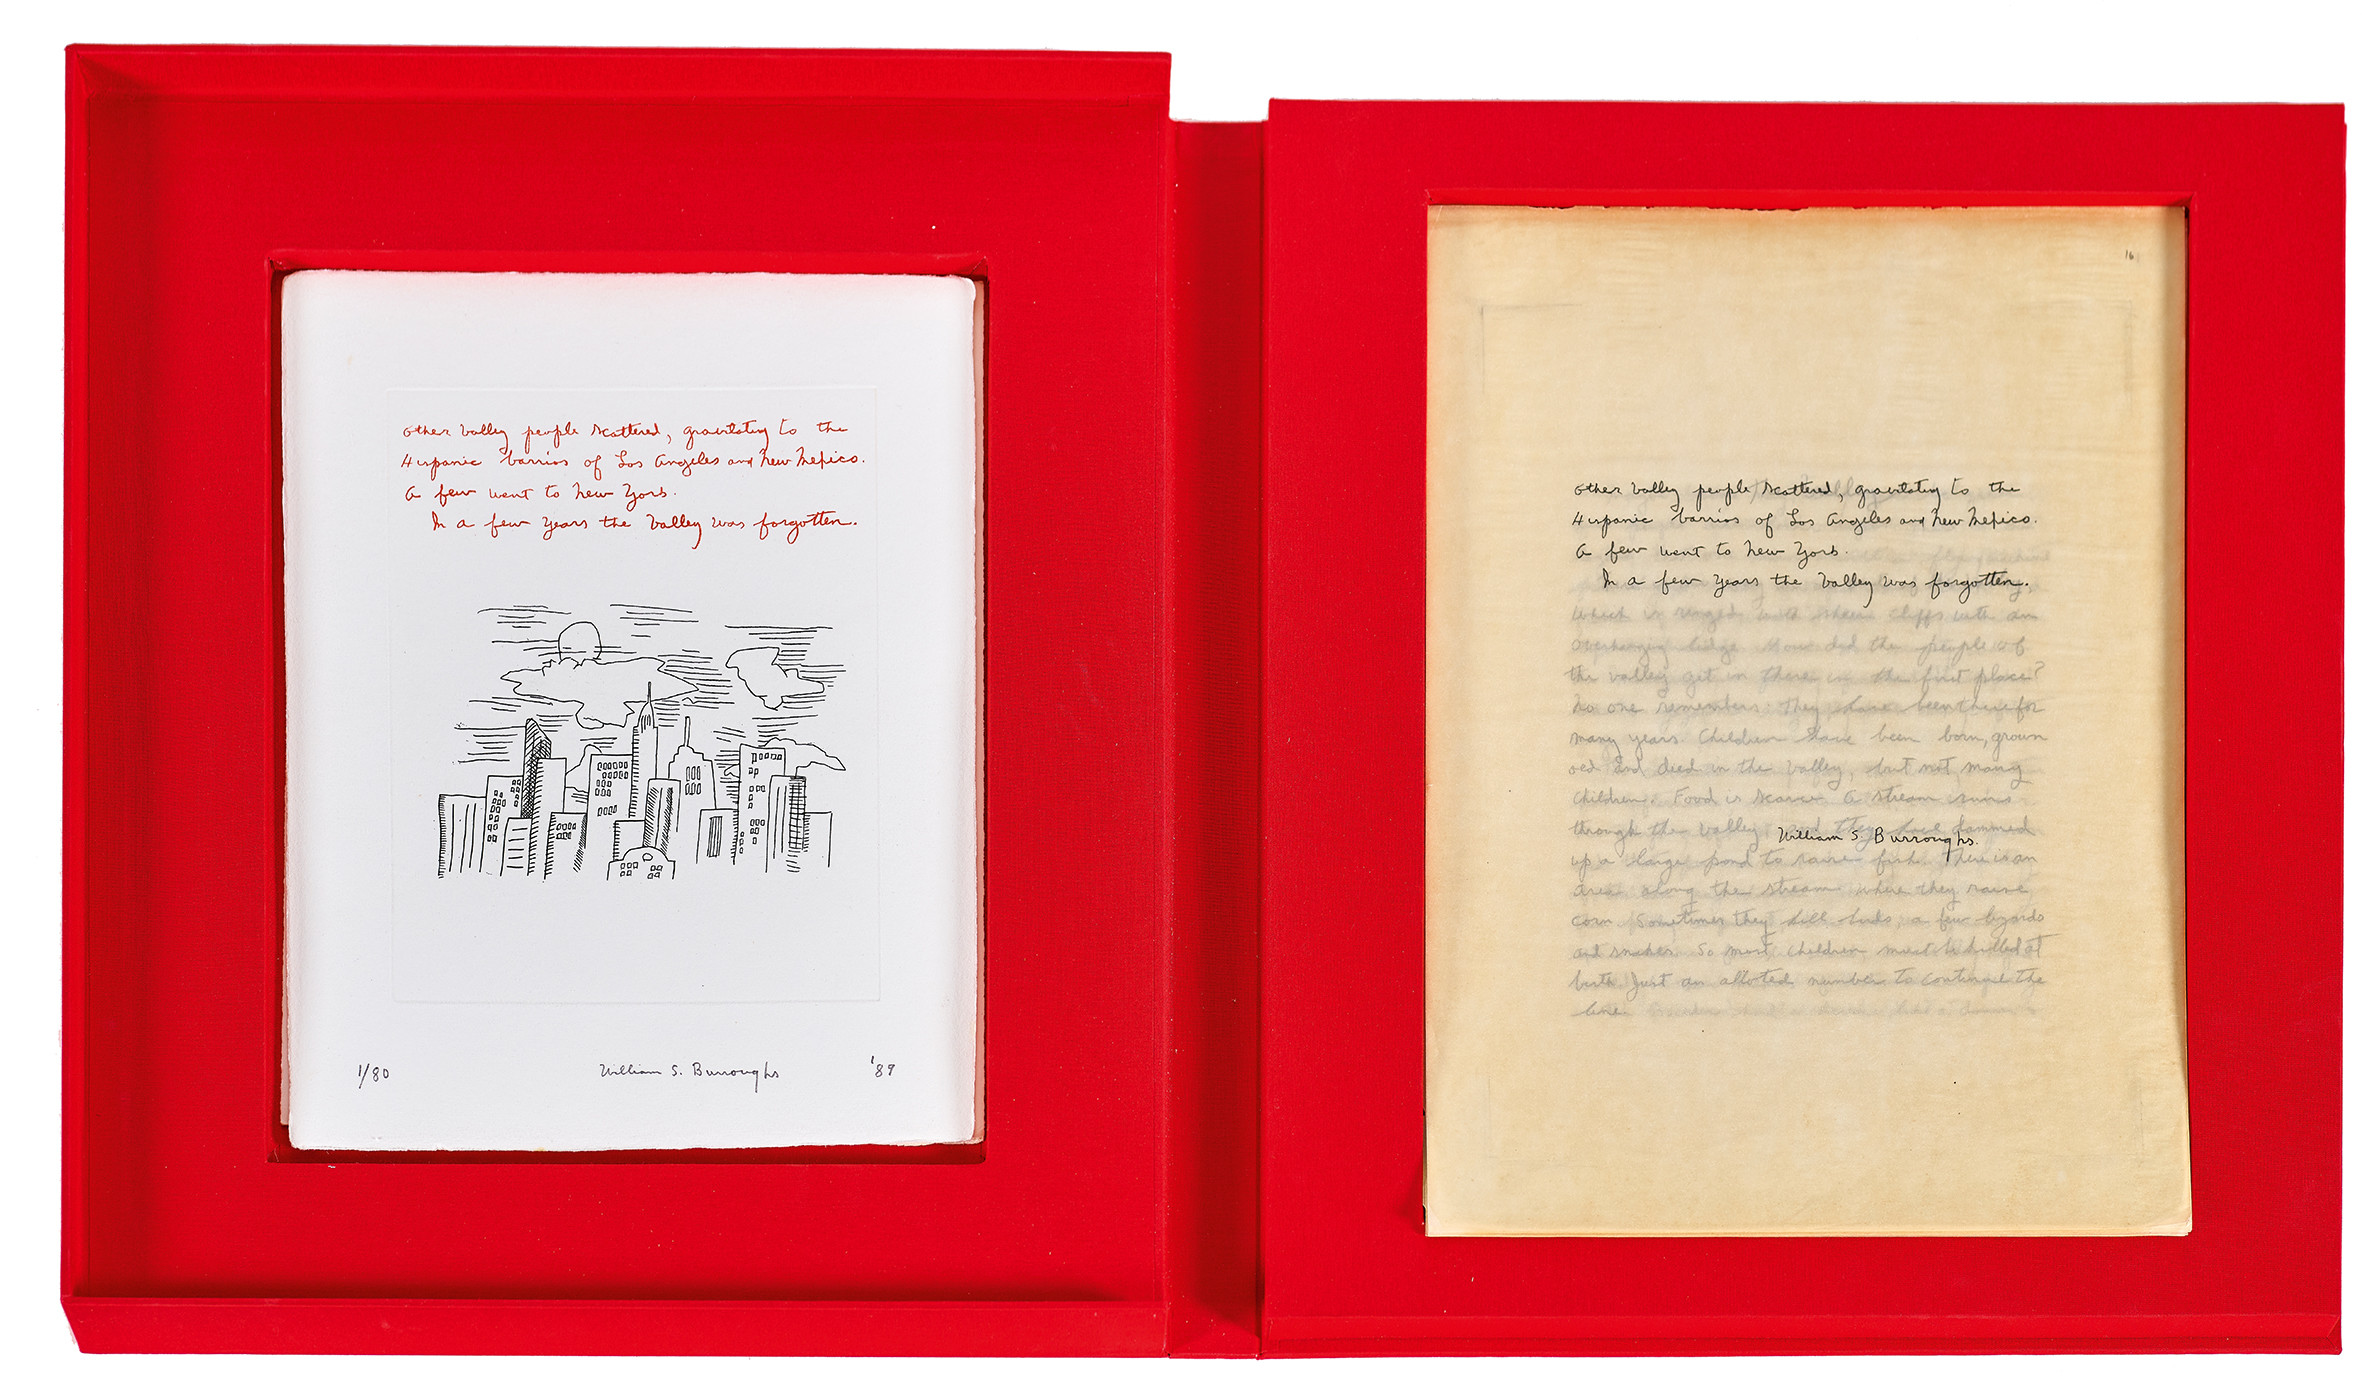 Other Valley people scattered, gravitating to the
Hispanic barrios of Los Angeles and New Mexico.
A few went to New York.
In a few years the Valley was forgotten.
1/80
William S. Burroughs
'89
16
Other Valley people scattered, gravitating to the
Hispanic barrios of Los Angeles and New Mexico.
A few went to New York.
In a few years the Valley was forgotten.
which is ringed with sheer cliffs with an
overhanging ledge. How did the people of
the valley get in there in the first place?
No one remembers. They have been there for
many years. Children have been born, grown
old and died in the Valley, but not many
children. Food is scarce. A stream runs
through the valley, and they have dammed
William S. Burroughs.
up a large pond to raise fish. There is an
area along the stream where they raise
corn. Sometimes they kill birds, a few lizards
and snakes. So most children must be killed at
birth. Just an alloted number to continue the
line.